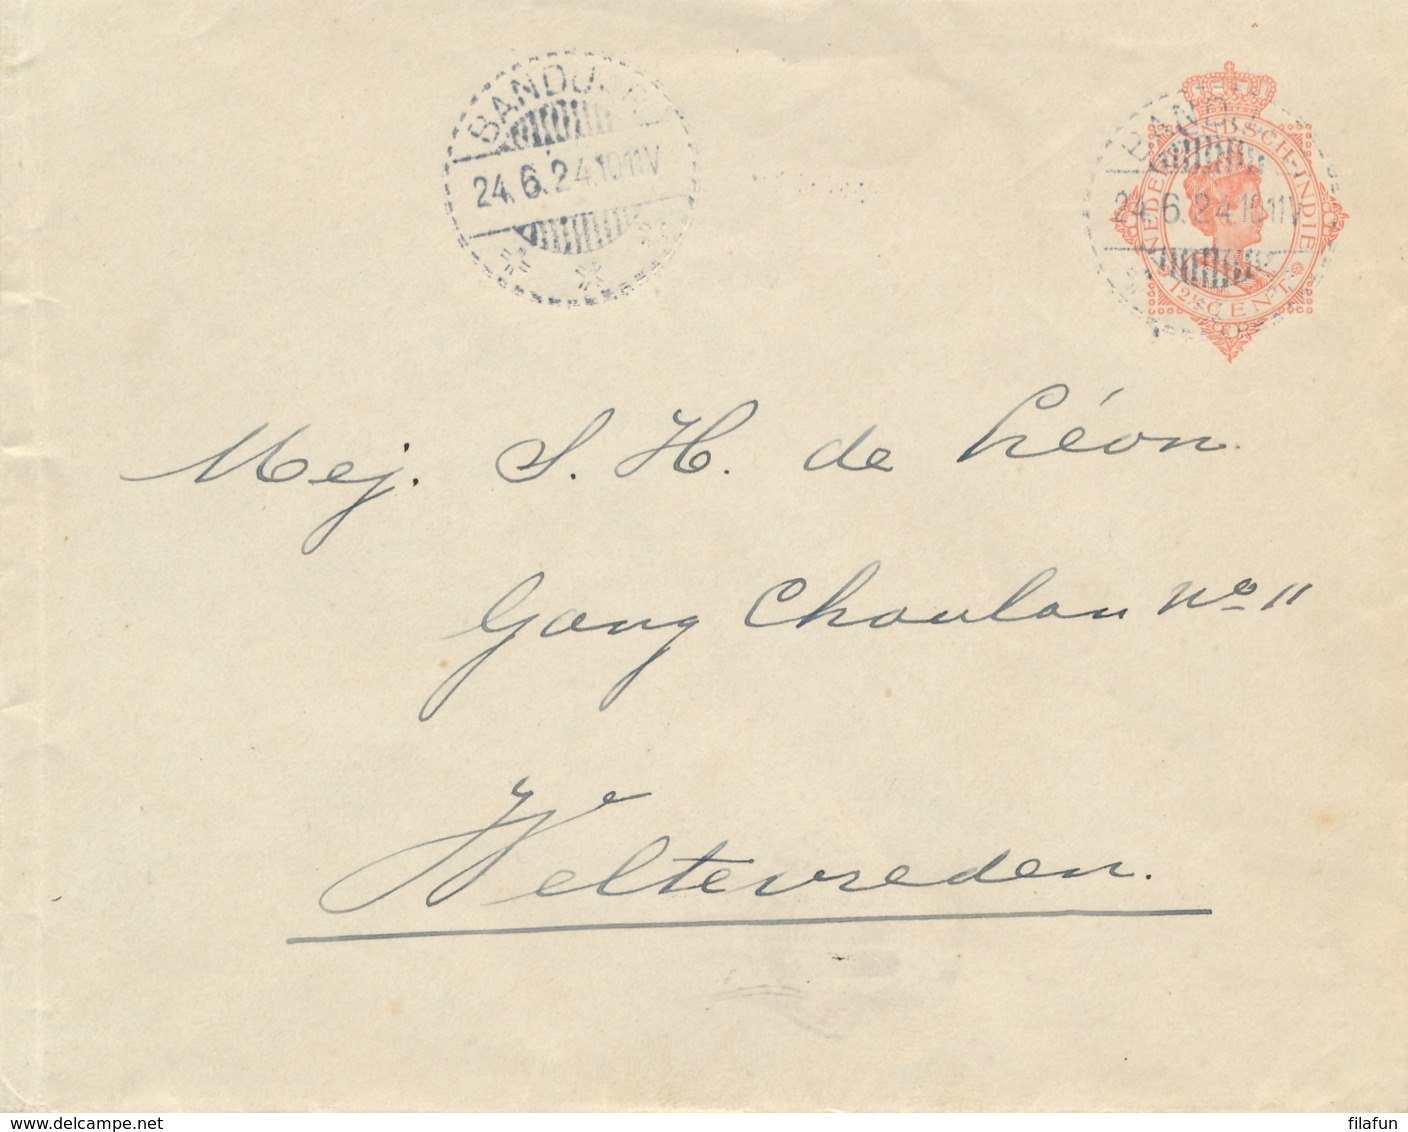 BANDOENG
24.6.24.10-11V
BANDO
24.6.24.10-11V
NEDERLANDSCH-INDIE
12½ CENT
Mej. S. H. de Léon.
Gang Chaulan No 11
Weltevreden.
www.delcampe.net
filafun